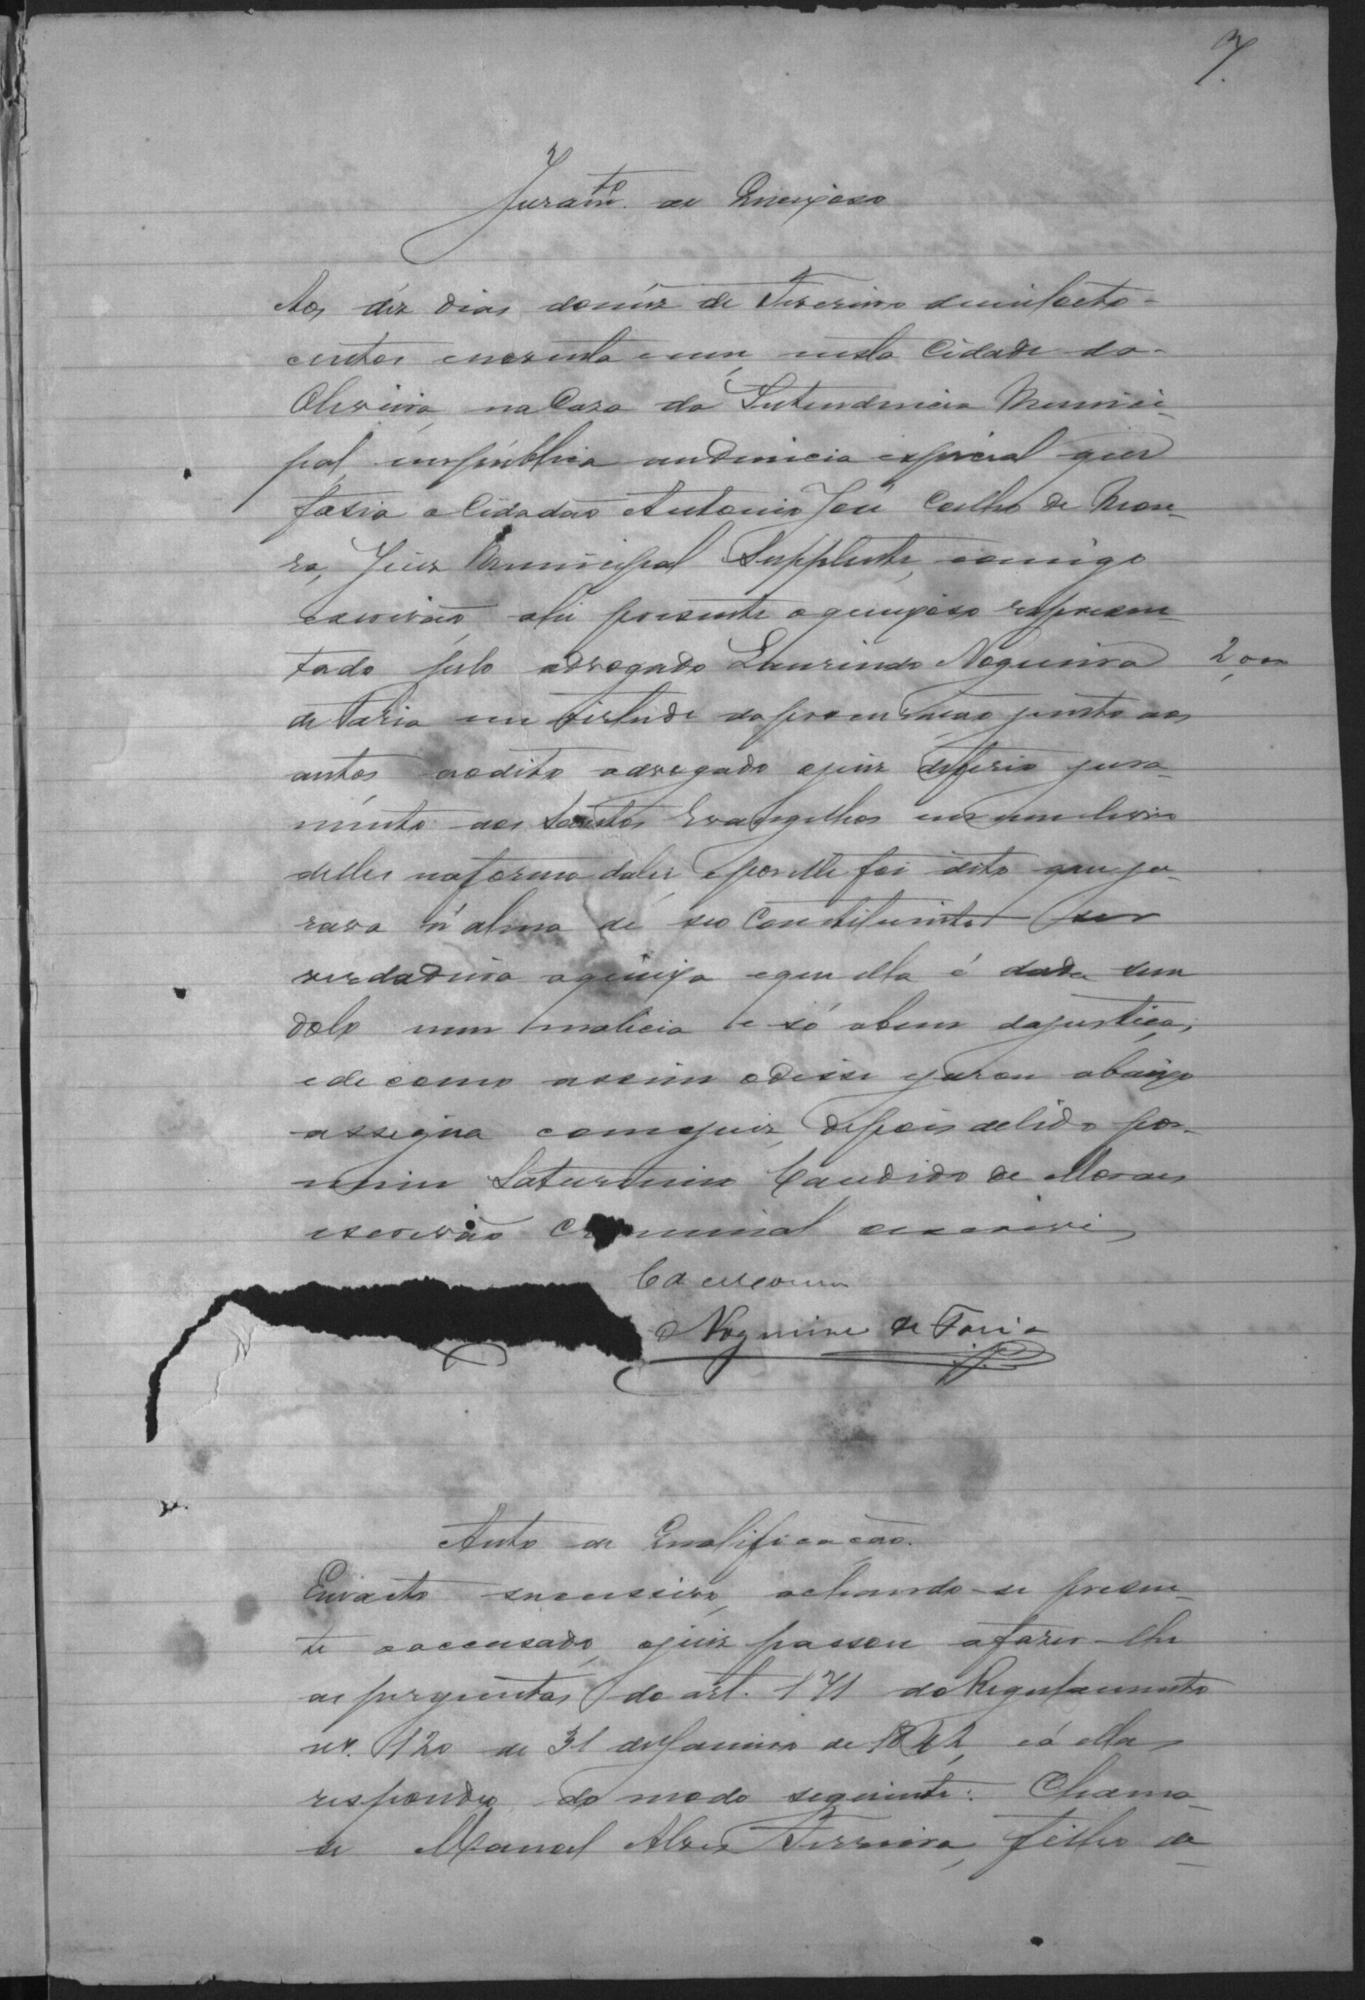 7.
Juram.to de Queixoso
Aos dez dias do mez de Fevereiro de mil oito-
centos e noventa e um, nesta Cidade da-
Oliveira, na Casa da Intendencia Munici-
pal, em publica audiencia especial que
fasia o Cidadão Antonio José Coelho de Mou-
ra, Juiz Municipal Supplente, comigo
escrivão, ahi presente o queixoso represen-
tado pelo advogado Laurindo Nogueira 2,000
de Faria em virtude da procuração junto aos
autos, ao dito advogado o juiz deferio jura-
mento aos Santos Evangelhos em um livro
delles na forma da lei e por elle foi dito que ju-
rava n'alma de seo Constituinte ser
verdadeira a queixa e que ella é dada sem
dolo nem malicia e só a bem da justiça;
e de como assim o disse e jurou abaixo
assigna com o juiz, depois de lido por
mim Saturnino Candido de Moraes
escrivão criminal o escrevi,
Nogueira de Faria
Auto de Qualificação.
Em acto successivo, achando-se presen-
te o accusado, o juiz passou a fazer-lhe
as perguntas do art. 171 do Regulamento
nº. 120 de 31 de Janeiro de 1842, e á ellas
respondeu do modo seguinte: Chama-
se Manoel Alves Ferreira, filho de